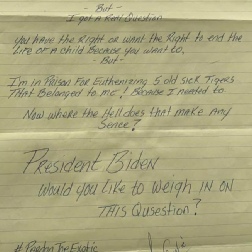 - But -
I got A Real Question
You have the Right or want the Right to end the
Life of A child Because you want to.
- But -
I'm in Prison For Euthenizing 5 old sick Tigers
That Belonged to me! Because I needed to.
Now where the Hell does that make Any
Sence?
President Biden
Would you Like to Weigh in on
This Qusestion?
# Pardon The Exotic